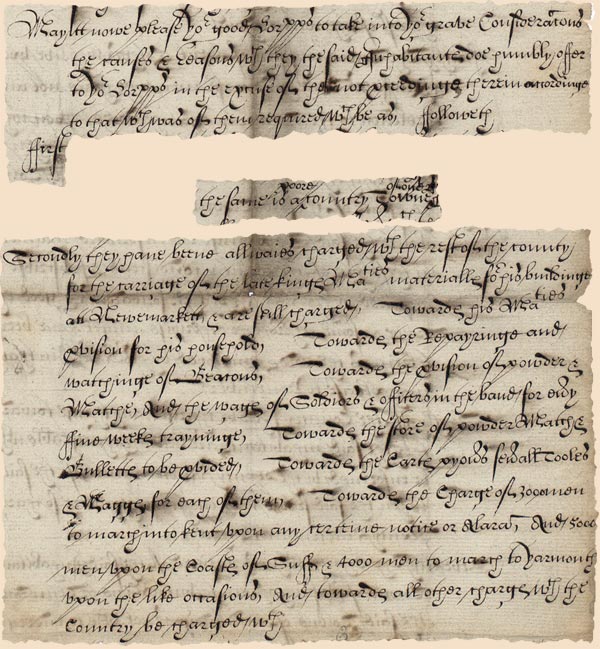 May itt nowe please yor good Lorpps to take into yor grave Consideracons
the causes & reasons wch they the said Inhabitants doe humbly offer
to yor Lorpps in the excuse of the not proceedinge therein accordinge
to that wch was of them required wch be as followeth
ffirst
the same is a poore country Towne
Secondly they have beene allwaies charged wth the rest of the county
for the carriage of the late kings Maties materialls for his buildings
att Newemarkett & are still charged, Towards his Maties
pvision for his househould, Towards the Repayringe and
watchinge of Beacons, Towards the pvision of powder &
Matche, And the wages of Soldiors & officers in the band for every
ffive weeks trayninge, Towards the store of powder Matche
Bulletts to be pvided, Towards the Carts pyoners sevall Tooles
& Waggs for each of them, Towards the Charge of 3000 men
to march into Kent upon any certeine notice or Alarm, And 5000
men upon the Coasts of Suff & 4000 men to march to Yarmouth
upon the like occasions, And towards all other charges wch the
Country be charged wth